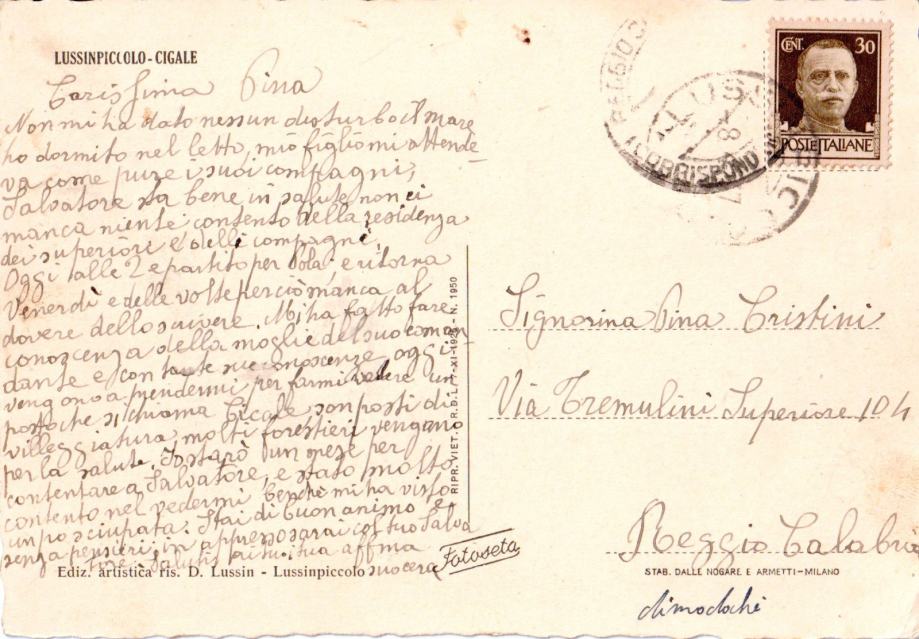 LUSSINPICCOLO - CIGALE
Carissima Pina
Non mi ha dato nessun disturbo il mare
ho dormito nel letto, mio figlio mi attende
va come pure i suoi compagni,
Salvatore sta bene in salute non ci
manca niente contento della residenza
dei superiore e delli compagni.
Oggi alle 2 e partito per Pola e ritorna
Venerdì e delle volte perciò manca al
dovere dello scrivere. Mi ha fatto fare
conoscenza della moglie del suo coman
dante e con tante sue conoscenze oggi
vengono a prendermi per farmi vedere un
posto che si chiama Cicale son posti di
villeggiatura molti forestieri vengano
per la salute. Io starò un mese per
contentare a Salvatore, e stato molto
contento nel vedermi benchè mi ha visto
un po sciupata. Stai di buon animo e
senza pensieri, in appresso sarai col tuo Salva
tore. Saluti ai tuoi, tua affma
suocera
Ediz. artistica ris. D. Lussin - Lussinpiccolo
Fotoseta
RIPR. VIET. - R. D. L. 7-XI-1925 - N. 1950
CENT. 30
POSTE ITALIANE
LUSS
8
CORRISPOND
REGGIO C
Signorina Pina Cristini
Via Tremulini Superiore 104
Reggio Calabria
STAB. DALLE NOGARE E ARMETTI - MILANO
dimodochè